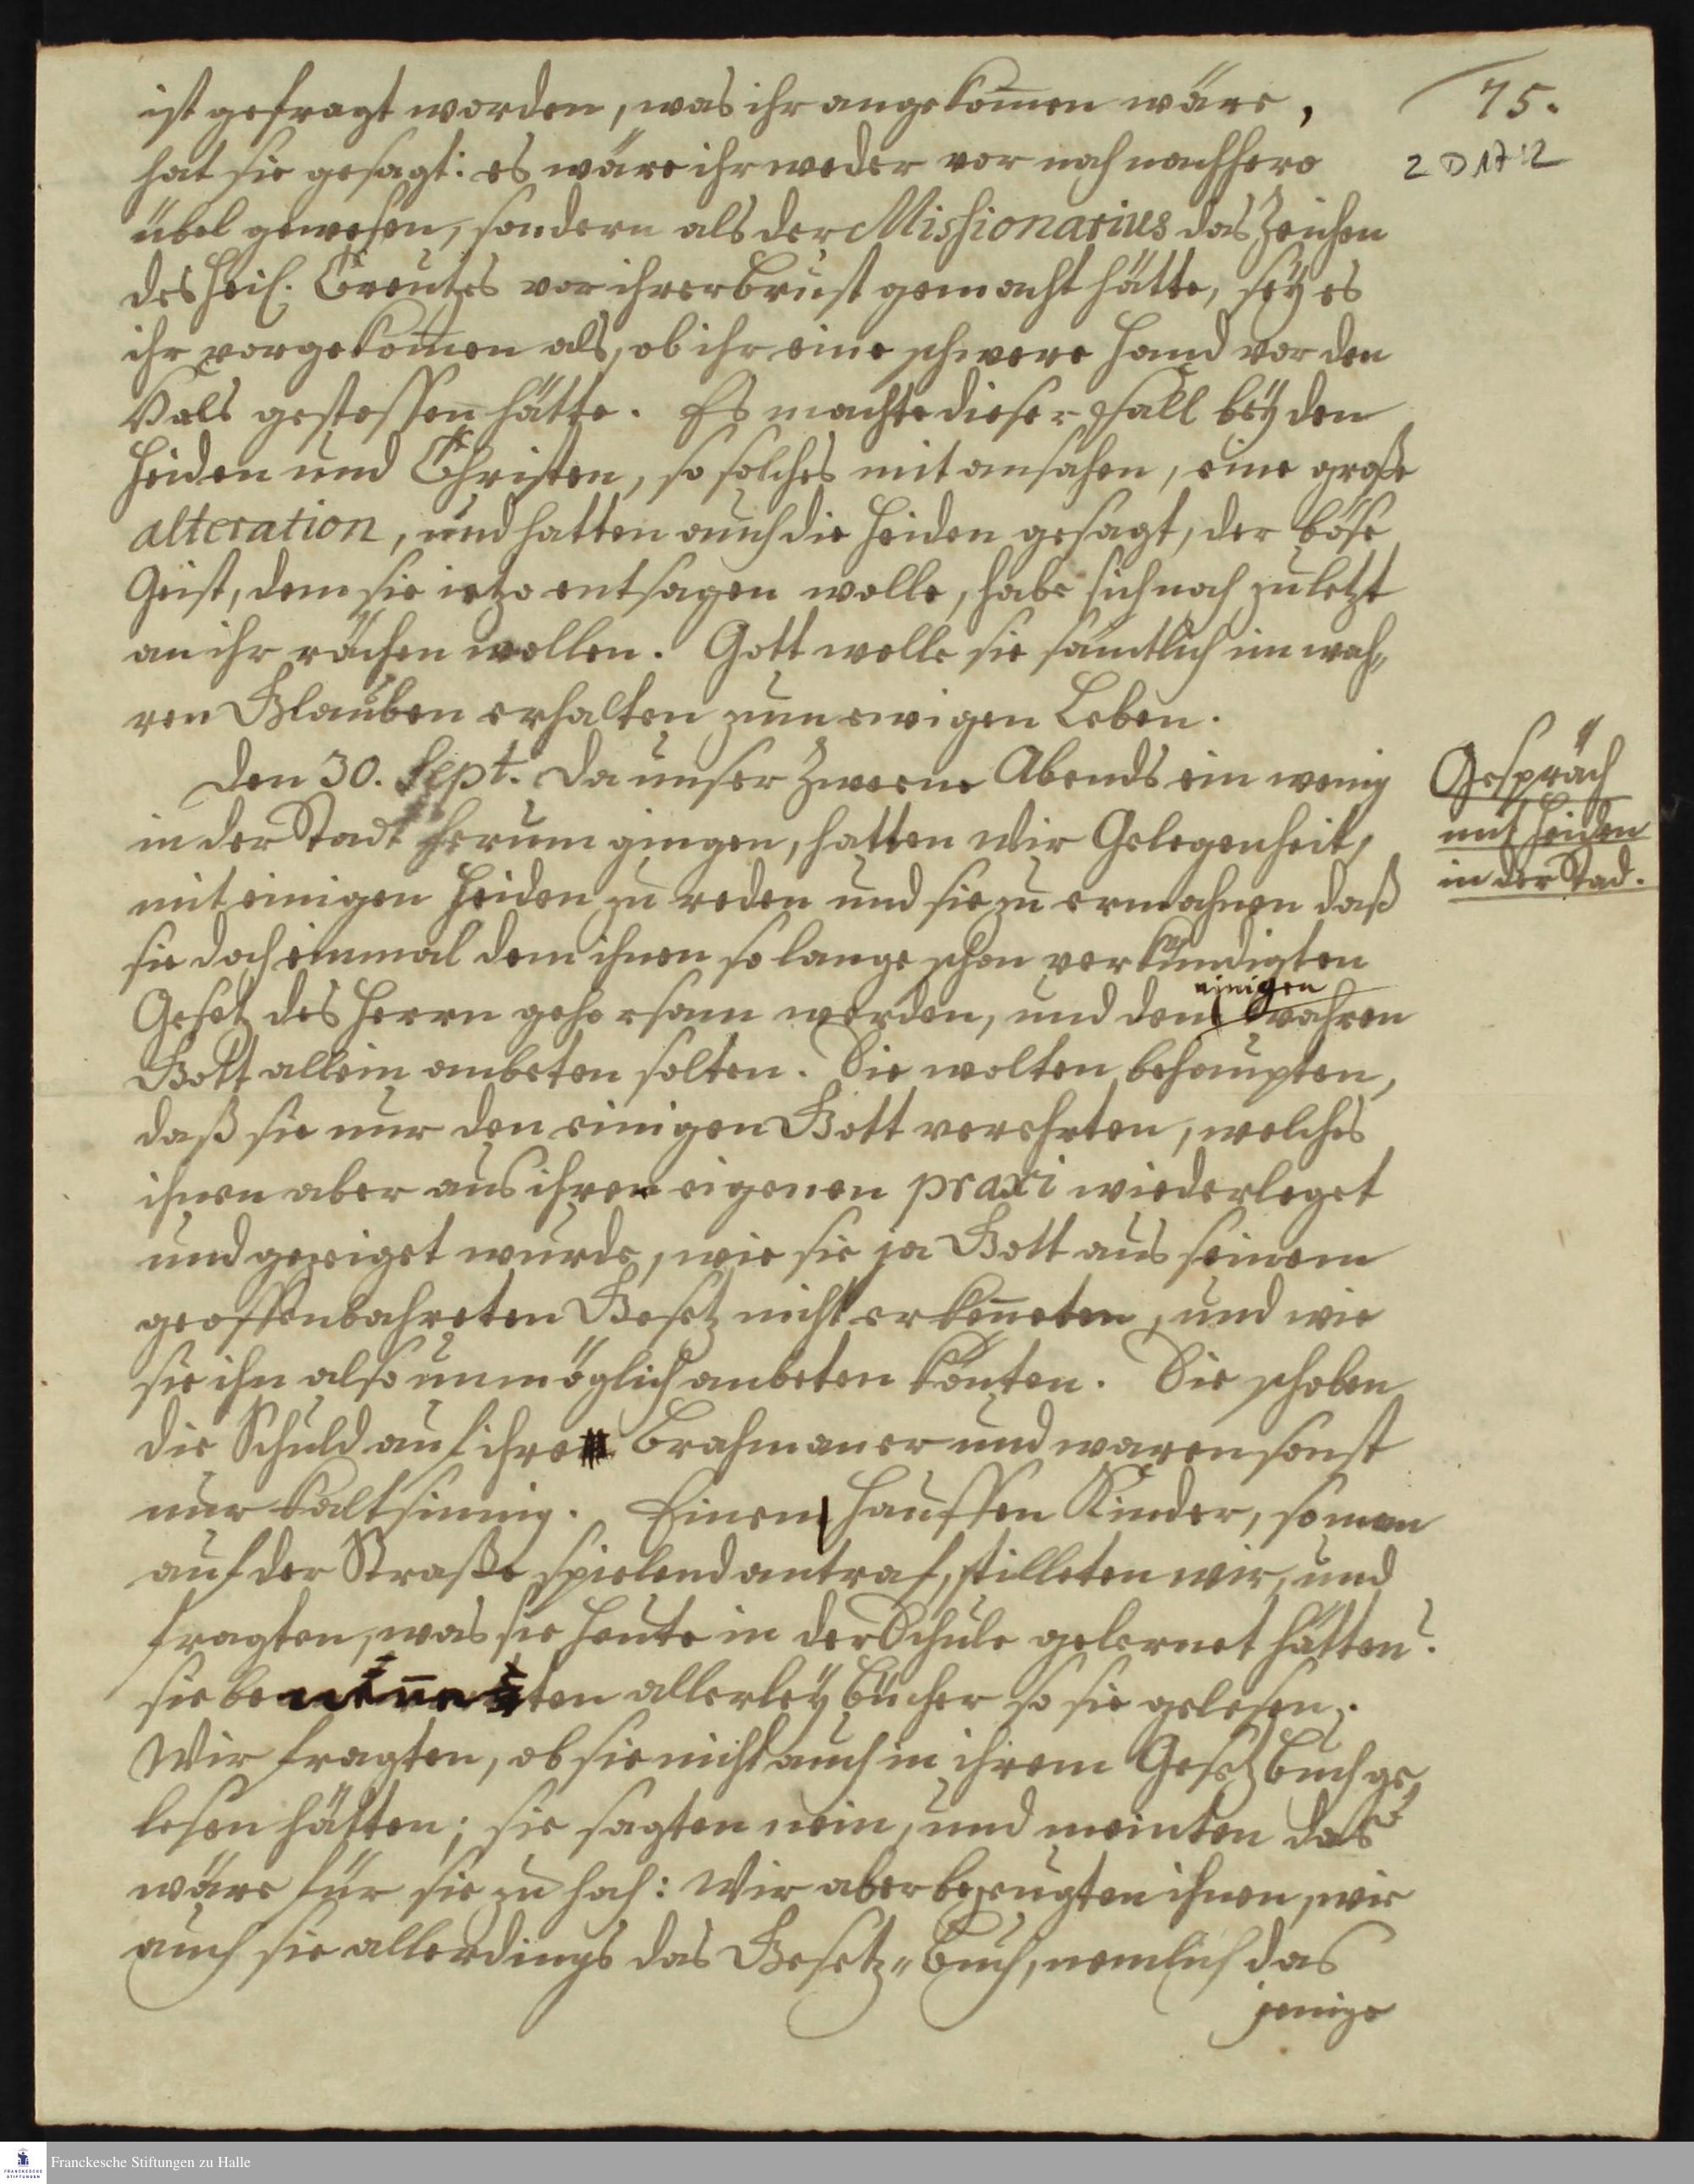 75.
2 D 17:2
ist gefragt worden, was ihr angekom̅en wäre,
hat sie gesagt: es wäre ihr weder vor noch nachhero
übel gewesen, sondern als der Missionarius das Zeichen
des heil. Creutzes vor ihrer Brust gemacht hätte, seÿ es
ihr vorgekom̅en als, ob ihr eine schwere Hand vor den
Hals gestossen hätte. Es machte dieser Fall beÿ den
Heiden und Christen, so solches mit ansahen, eine große
alteration, und hatten auch die Heiden gesagt, der böse
Geist, dem sie ietzo entsagen wolle, habe sich noch zuletzt
an ihr rächen wollen. Gott wolle sie sämtlich im wah„
ren Glauben erhalten zum ewigen Leben.
Den 30. Sept. Da unser Zweene Abends ein wenig
in der Stadt herum gingen, hatten wir Gelegenheit,
mit einigen Heiden zu reden und sie zu ermahnen daß
sie doch einmal dem ihnen so lange schon verkündigten
Gesetz des Herrn gehorsam werden, und den einigen wahren
Gott allein anbeten solten. Sie wolten behaupten,
daß sie nur den einigen Gott verehrten, welches
ihnen aber aus ihrer eigenen praxi wiederleget
und gezeiget wurde, wie sie ja Gott aus seinem
geoffenbahreten Gesetz nicht erken̅eten, und wie
sie ihn also unmöglich anbeten kön̅ten. Sie schoben
die Schuld auf ihre Brahmaner und waren sonst
nur kaltsinnig. Einen Hauffen Kinder, so man
auf der Straße spielend antraf, stilleten wir, und
fragten, was sie heute in der Schule gelernet hätten?
sie benen̅eten allerleÿ Bücher so sie gelesen.
Wir fragten, ob sie nicht auch in ihrem Gesetz Buch ge„
lesen hätten; sie sagten nein, und meinten das
wäre für sie zu hoch: Wir aber bezeugten ihnen, wie
auch sie allerdings das Gesetz„Buch, nemlich das
jenige
Gespräch
mit Heiden
in der Stad.
Franckesche Stiftungen zu Halle
FRANCKESCHE
STIFTUNGEN